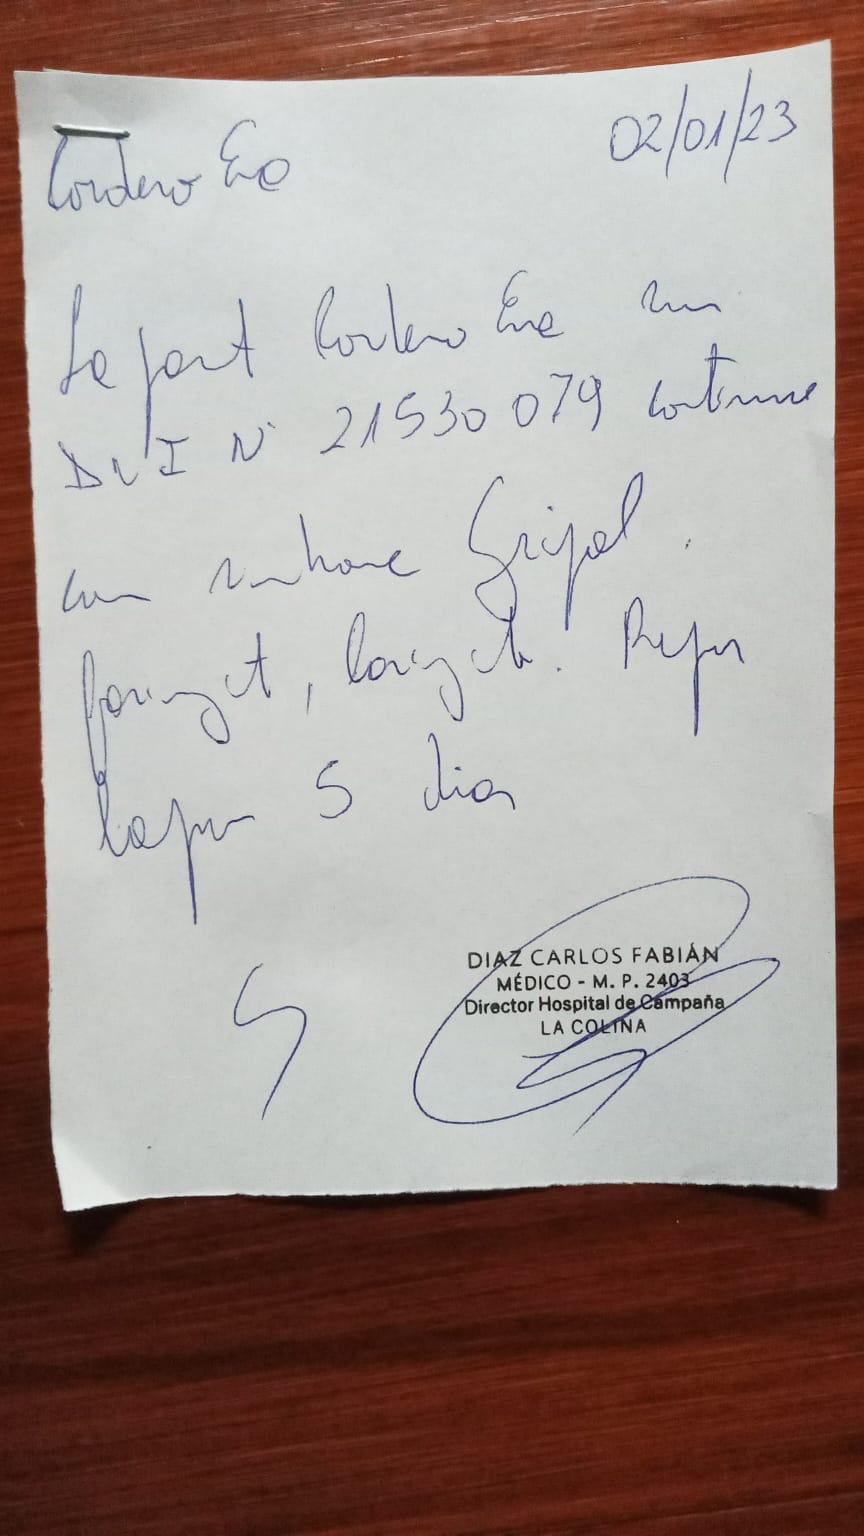 Cordero Eve 02/01/23
La pact Cordero Eve
DNI N° 21530079 continue
con sindrome Gripal.
faringit, laringit. Repos
5 dias
DIAZ CARLOS FABIÁN
MÉDICO - M. P. 2403
Director Hospital de Campaña
LA COLINA